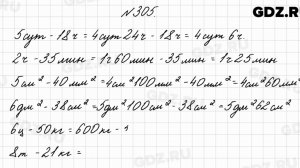 GDZ.R
№305.
5сут - 18ч = 4сут 24ч - 18ч = 4сут 6ч.
2ч - 35мин = 1ч 60мин - 35мин = 1ч 25мин
5см² - 40мм² = 4см² 100мм² - 40мм² = 4см² 60мм²
6дм² - 38см² = 5дм² 100см² - 38см² = 5дм² 62см²
6ц - 50кг = 600кг -
8т - 21кг =
GDZ.RU